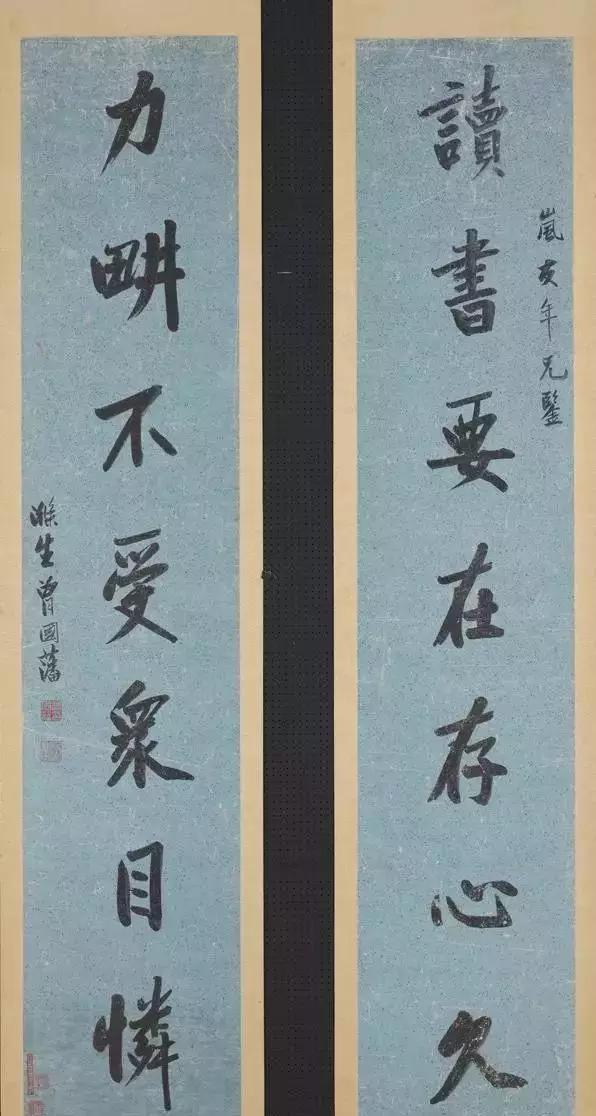 讀書要在存心久
嵐友年兄鑒
力畊不受衆目憐
滌生曾國藩